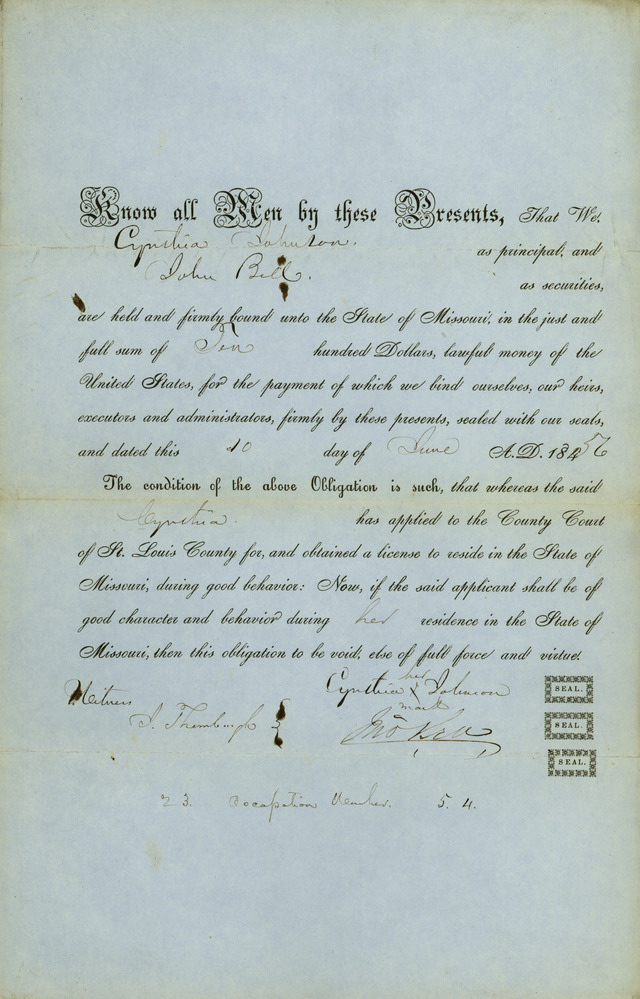 Know all Men by these Presents, That We,
Cynthia Johnson. as principal, and
John Bell. as securities,
are held and firmly bound unto the State of Missouri, in the just and
full sum of Ten hundred Dollars, lawful money of the
United States, for the payment of which we bind ourselves, our heirs,
executors and administrators, firmly by these presents, sealed with our seals,
and dated this 10 day of June A.D. 184
The condition of the above Obligation is such, that whereas the said
Cynthia. has applied to the County Court
of St. Louis County for, and obtained a license to reside in the State of
Missouri, during good behavior: Now, if the said applicant shall be of
good character and behavior during her residence in the State of
Missouri, then this obligation to be void, else of full force and virtue.
her
Cynthia X Johnson SEAL.
mark
Witness
Jno Bell SEAL.
SEAL.
23. 5. 4.